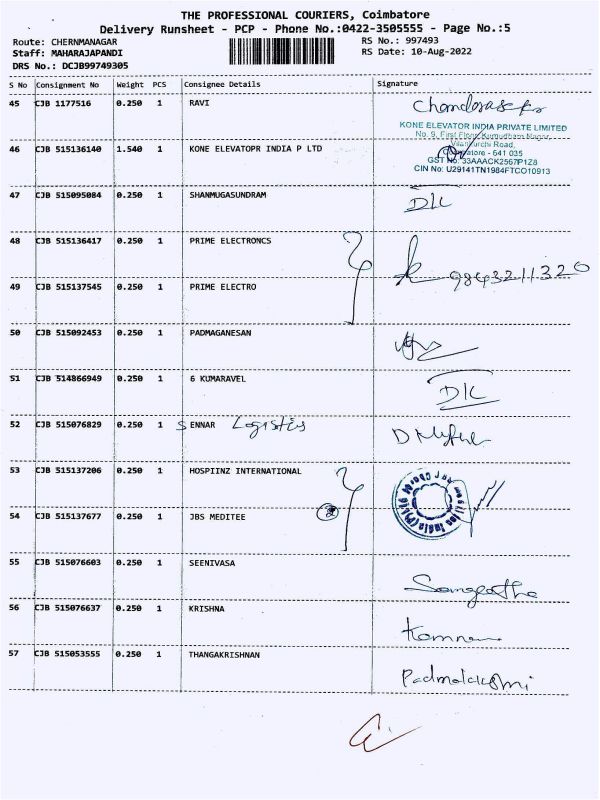 THE PROFESSIONAL COURIERS, Coimbatore
Delivery Runsheet - PCP - Phone No.:0422-3505555 - Page No.:5
Route: CHERNMANAGAR RS No.: 997493
Staff: MAHARAJAPANDI RS Date: 10-Aug-2022
DRS No.: DCJB99749305
S No Consignment No Weight PCS Consignee Details Signature
45 CJB 1177516 0.250 1 RAVI
KONE ELEVATOR INDIA PRIVATE LIMITED
No. 9, First Floor, Kumudham Nagar,
Vilankurchi Road,
46 CJB 515136140 1.540 1 KONE ELEVATOPR INDIA P LTD Coimbatore - 641 035
GST No. 33AAACK2567P1Z8
CIN No: U29141TN1984FTCO10913
47 CJB 515095084 0.250 1 SHANMUGASUNDRAM DK
48 CJB 515136417 0.250 1 PRIME ELECTRONCS
9843211320
49 CJB 515137545 0.250 1 PRIME ELECTRO
50 CJB 515092453 0.250 1 PADMAGANESAN
51 CJB 514866949 0.250 1 6 KUMARAVEL DK
52 CJB 515076829 0.250 1 S ENNAR Logistics
53 CJB 515137206 0.250 1 HOSPIINZ INTERNATIONAL
54 CJB 515137677 0.250 1 JBS MEDITEE
55 CJB 515076603 0.250 1 SEENIVASA
Sangeetha
56 CJB 515076637 0.250 1 KRISHNA
57 CJB 515053555 0.250 1 THANGAKRISHNAN
Padmalakshmi